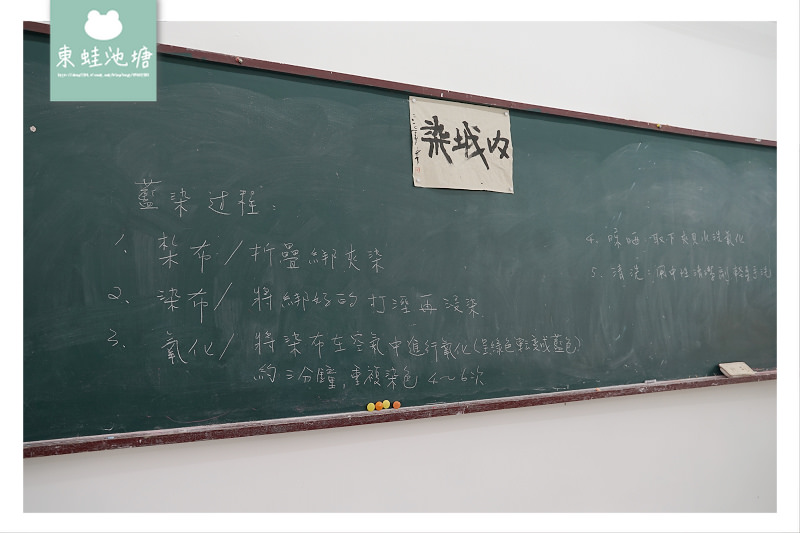 東蛙池塘
染城內
藍染过程:
1. 紮布/折疊綁夾染
2. 染布/將綁好的打溼再浸染
3. 氧化/將染布在空氣中進行氧化(呈綠色轉變成藍色)
約三分鐘,重複染色4~6次
4. 晾晒:取下夾具水洗氧化
5. 清洗:用中性清潔劑輕柔手洗